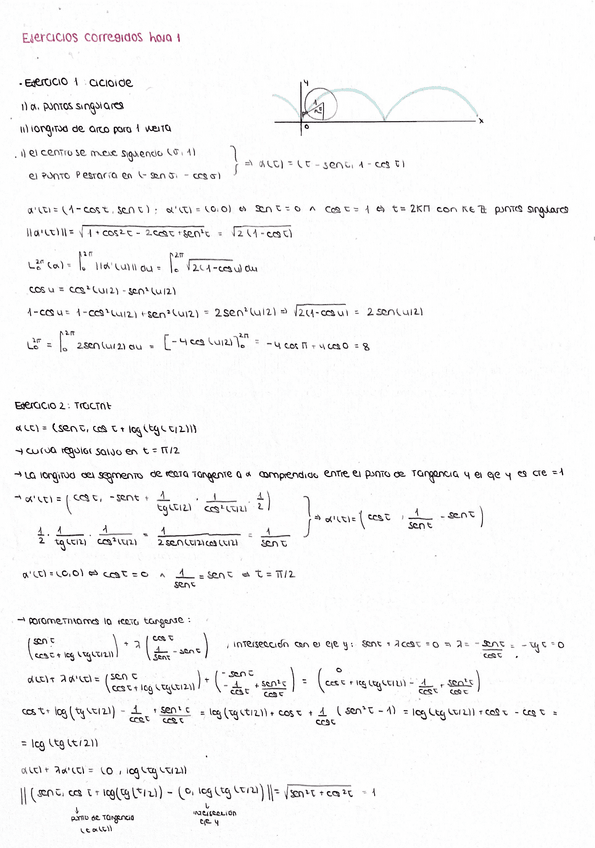 Ejercicios corregidos hoja 1
· Ejercicio 1 cicloide
i) α, puntos singulares
ii) longitud de arco para 1 vuelta
y
x
0
1
i) el centro se mueve siguiendo (t, 1)
el punto P estaría en (-sen t, -cos t)
⇒ α(t) = (t - sen t, 1 - cos t)
α'(t) = (1-cos t, sen t) ; α'(t) = (0,0) ⇔ sen t = 0 ∧ cos t = 1 ⇔ t = 2kπ con k∈ℤ puntos singulares
||α'(t)|| = √(1 + cos²t - 2cos t + sen²t) = √(2(1-cos t))
L₀^{2π}(α) = ∫₀^{2π} ||α'(u)|| du = ∫₀^{2π} √(2(1-cos u)) du
cos u = cos²(u/2) - sen²(u/2)
1-cos u = 1-cos²(u/2) + sen²(u/2) = 2sen²(u/2) ⇒ √(2(1-cos u)) = 2sen(u/2)
L₀^{2π} = ∫₀^{2π} 2sen(u/2) du = [-4cos(u/2)]₀^{2π} = -4cos π + 4cos 0 = 8
Ejercicio 2:
α(t) = (sen t, cos t + log(tg(t/2)))
→ curva regular salvo en t = π/2
→ La longitud del segmento de recta tangente a α comprendido entre el punto de tangencia y el eje y es cte = 1
→ α'(t) = (cos t, -sen t + 1/tg(t/2) · 1/cos²(t/2) · 1/2)
1/2 · 1/tg(t/2) · 1/cos²(t/2) = 1/(2sen(t/2)cos(t/2)) = 1/sen t
⇒ α'(t) = (cos t, 1/sen t - sen t)
α'(t) = (0,0) ⇔ cos t = 0 ∧ 1/sen t = sen t ⇔ t = π/2
→ parametrizamos la recta tangente:
(sen t, cos t + log(tg(t/2))) + λ (cos t, 1/sen t - sen t), intersección con el eje y: sent + λcos t = 0 ⇒ λ = - sen t/cos t = -tg t = 0
α(t) + λα'(t) = (sen t, cos t + log(tg(t/2))) + (-sen t, -1/cos t + sen²t/cos t) = (0, cos t + log(tg(t/2)) - 1/cos t + sen²t/cos t)
cos t + log(tg(t/2)) - 1/cos t + sen²t/cos t = log(tg(t/2)) + cos t + 1/cos t (sen²t - 1) = log(tg(t/2)) + cos t - cos t =
= log(tg(t/2))
α(t) + λα'(t) = (0, log(tg(t/2)))
||(sen t, cos t + log(tg(t/2)) - (0, log(tg(t/2))|| = √(sen²t + cos²t) = 1
punto de tangencia
(α(t))
intersección
eje y